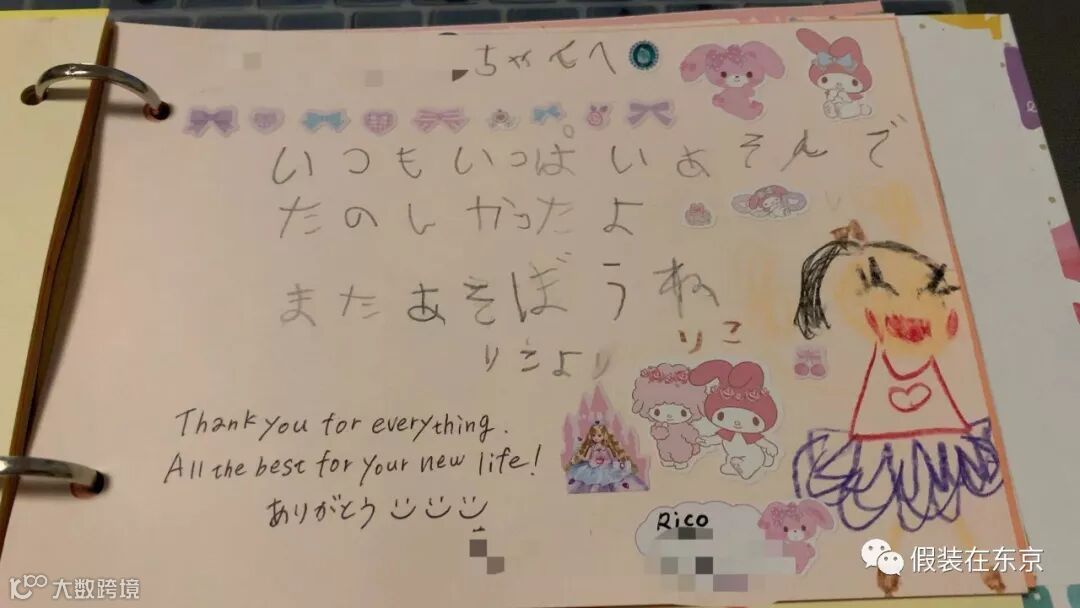 ちゃんへ
いつもいっぱいあそんで
たのしかったよ
またあそぼうね
りこより
りこ
Thank you for everything.
All the best for your new life!
ありがとう
Rico
假装在东京
大数跨境